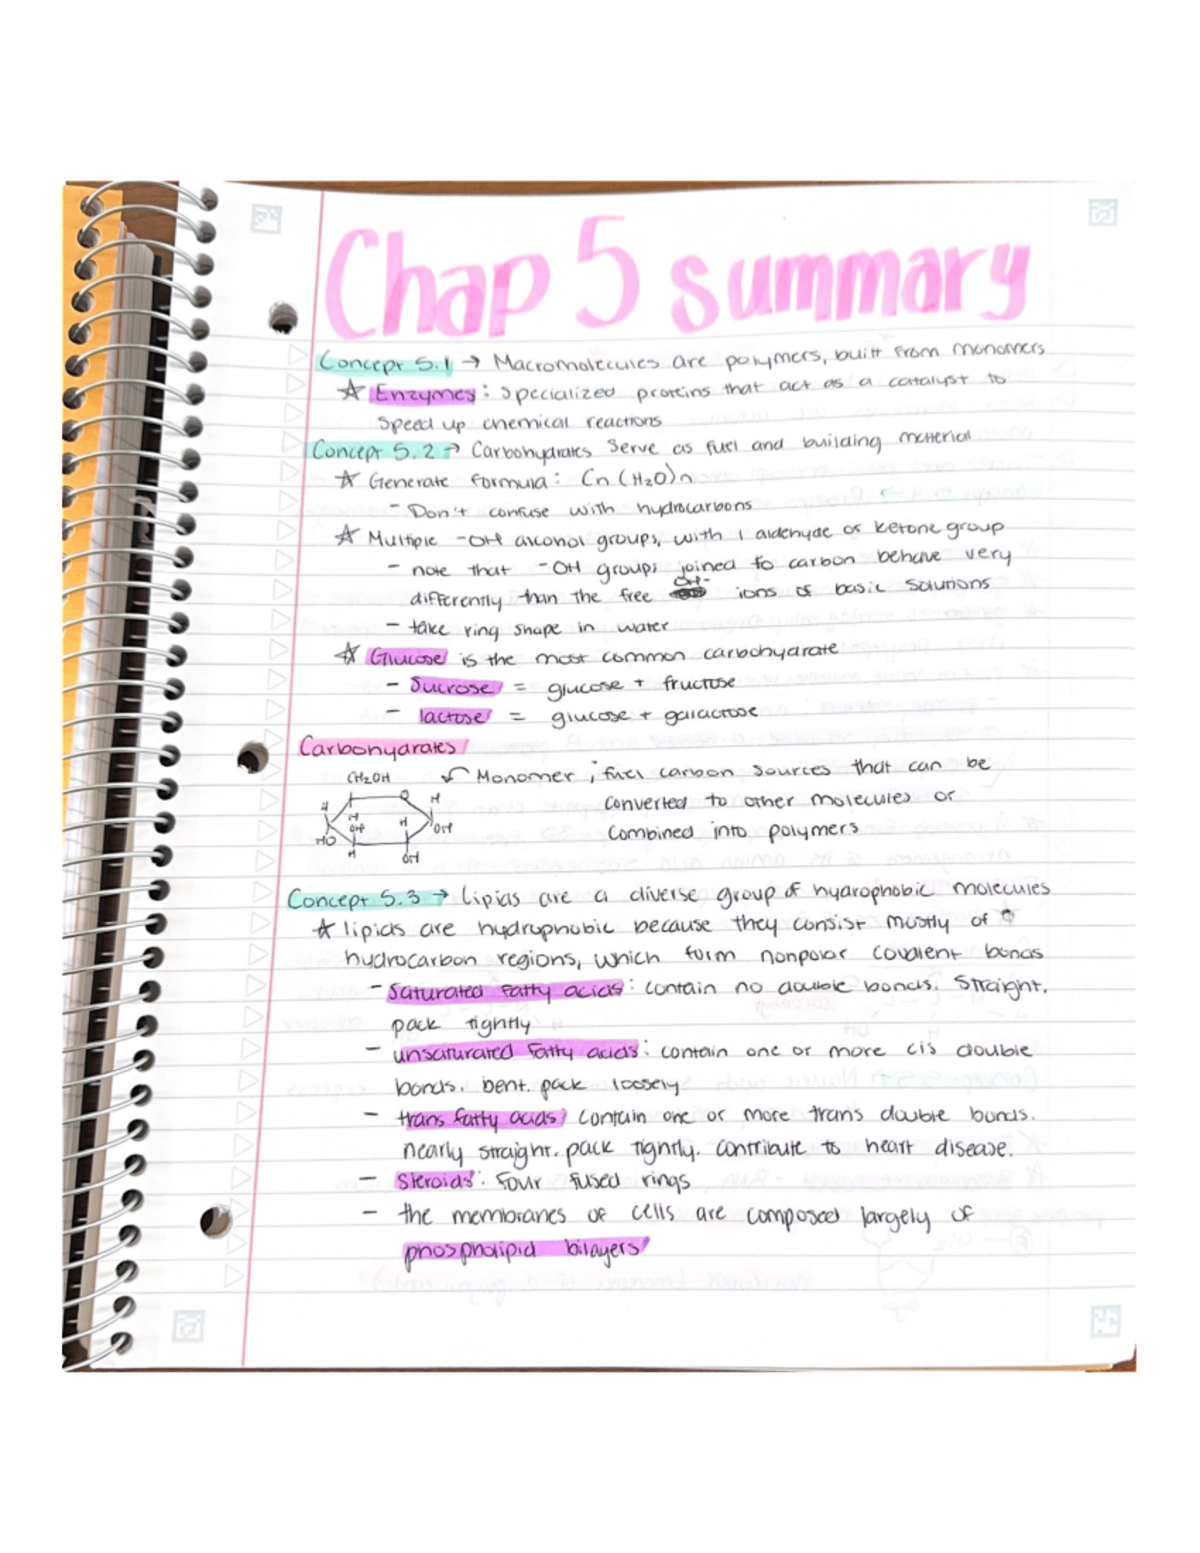 Chap 5 summary
Concept 5.1 → Macromolecules are polymers, built from monomers
☆ Enzymes: Specialized proteins that act as a catalyst to
speed up chemical reactions
Concept 5.2 → Carbohydrates serve as fuel and building material
☆ Generate formula: Cn (H₂O)n
- Don't confuse with hydrocarbons
☆ Multiple -OH alcohol groups, with 1 aldehyde or ketone group
- note that -OH groups joined to carbon behave very
differently than the free OH- ions of basic solutions
- take ring shape in water
☆ Glucose is the most common carbohydrate
- Sucrose = glucose + fructose
- lactose = glucose + galactose
Carbohydrates
CH₂OH ↙ Monomer ; fuel carbon sources that can be
converted to other molecules or
combined into polymers
H O H
H
OH H OH
HO
H OH
Concept 5.3 → Lipids are a diverse group of hydrophobic molecules
☆ lipids are hydrophobic because they consist mostly of
hydrocarbon regions, which form nonpolar covalent bonds
- Saturated fatty acids: contain no double bonds. Straight.
pack tightly
- unsaturated fatty acids: contain one or more cis double
bonds. bent. pack loosely
- trans fatty acids: contain one or more trans double bonds.
nearly straight. pack tightly. contribute to heart disease.
- Steroids: Four fused rings
- the membranes of cells are composed largely of
phospholipid bilayers